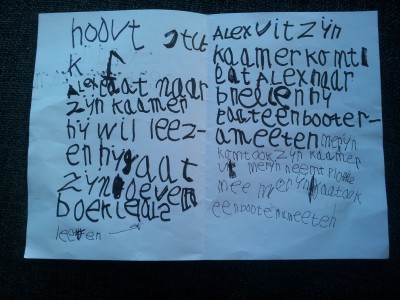 hoovt
k
ALEX gaat naar
zyn kaamer
hy wil leez-
en hy gaat
zyn boeven
boek
leezen
ALEX uit zyn
kaamer komt
gat ALEX naar
hy
gaat een booter-
ameeten meryn
komt ook zyn kaamer
uit meryn neemt
mee meryn gaat ook
een booterameeten